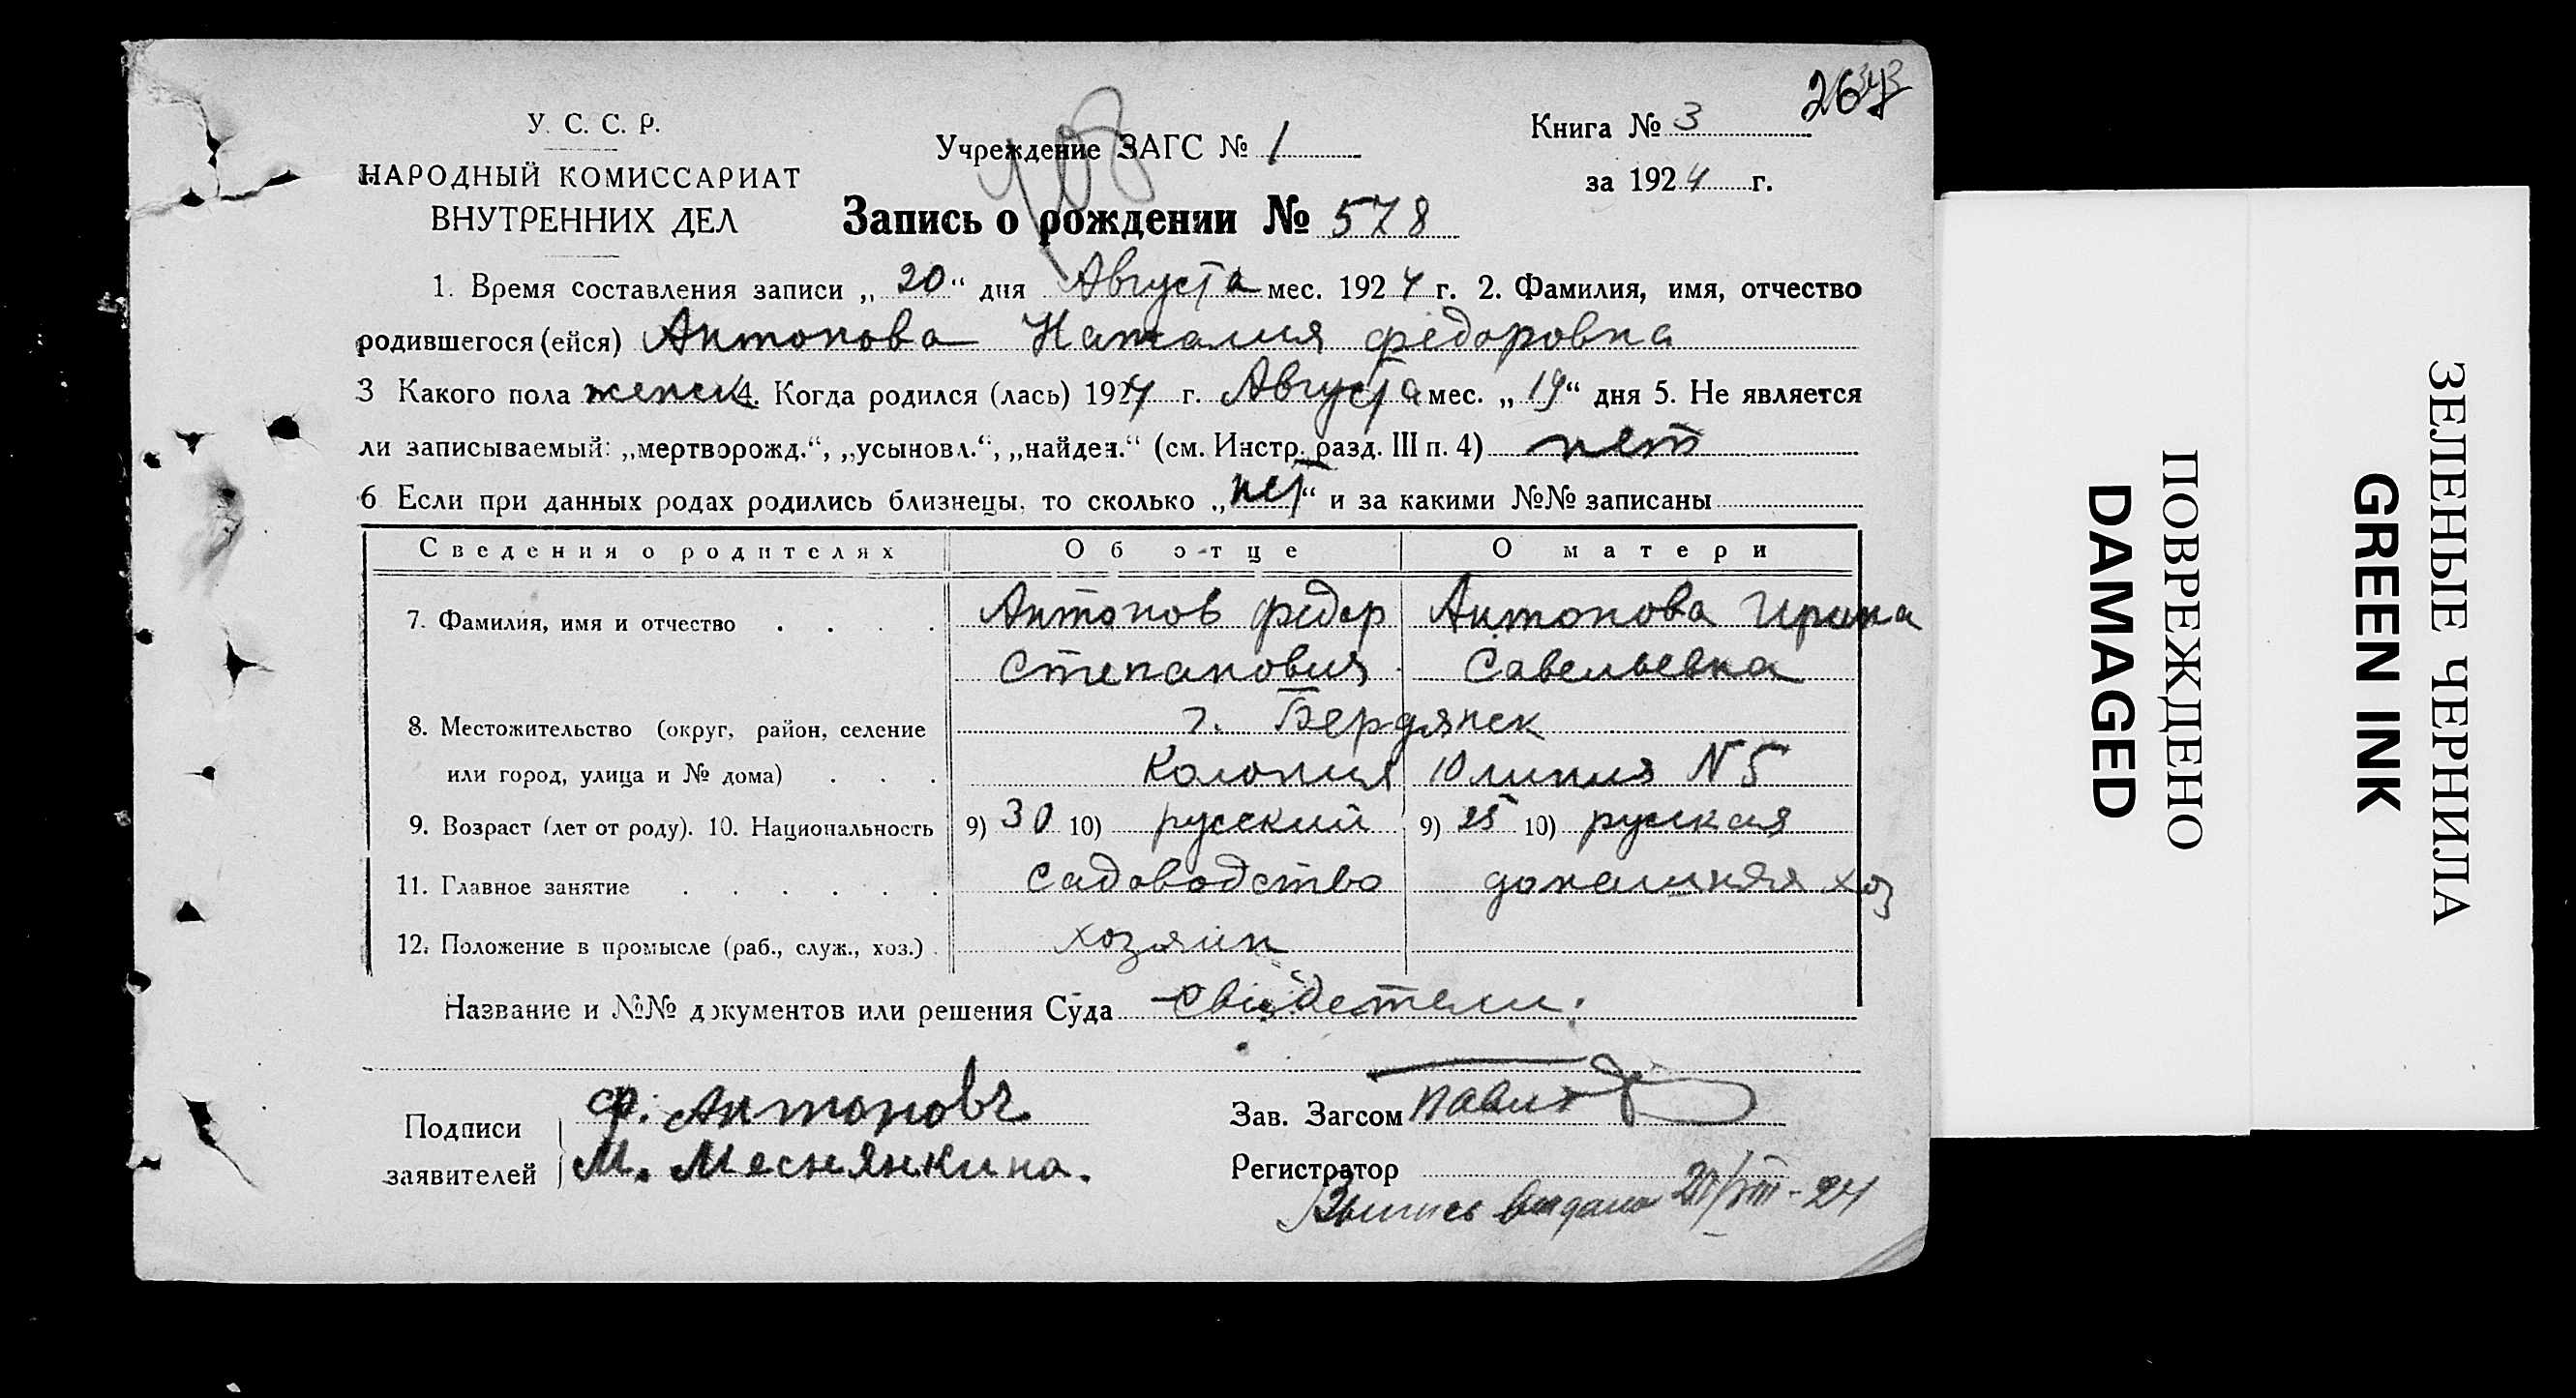 У. С. С. Р.
НАРОДНЫЙ КОМИССАРИАТ
ВНУТРЕННИХ ДЕЛ
Учреждение ЗАГС № 1
Книга № 3
за 1924 г.
Запись о рождении № 578
1. Время составления записи „20“ дня Августа мес. 1924 г. 2. Фамилия, имя, отчество
родившегося (ейся) Антонова Наталия Федоровна
3 Какого пола женск 4. Когда родился (лась) 1924 г. Августа мес. „19“ дня 5. Не является
ли записываемый: „мертворожд.“, „усыновл.“, „найден.“ (см. Инстр. разд. III п. 4) нет
6 Если при данных родах родились близнецы, то сколько „нет“ и за какими №№ записаны
Сведения о родителях Об отце О матери
7. Фамилия, имя и отчество . . . . Антонов Федор Антонова Ирина
Степанович Савельевна
8. Местожительство (округ, район, селение г. Бердянск
или город, улица и № дома) . . . Колония 10 линия N 5
9. Возраст (лет от роду). 10. Национальность 9) 30 10) русский 9) 25 10) руская
11. Главное занятие . . . . . . садоводство домашняя хоз
12. Положение в промысле (раб., служ., хоз.) . хозяин
Название и №№ документов или решения Суда Свидетели:
Подписи заявителей
Ф. Антоновъ
М. Меснянкина.
Зав. Загсом
Регистратор
Выпись выдана 20/VIII-24
ПОВРЕЖДЕНО
DAMAGED
ЗЕЛЕНЫЕ ЧЕРНИЛА
GREEN INK